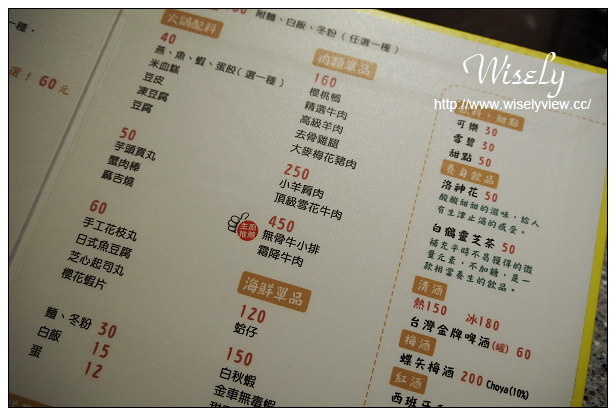 附麵、白飯、冬粉(任選一種)
一種,
選! 60元
火鍋配料
40
燕、魚、蝦、蛋餃(選一種)
米血糕
豆皮
凍豆腐
豆腐
50
芋頭貢丸
蟹肉棒
麻吉燒
60
手工花枝丸
日式魚豆腐
芝心起司丸
櫻花蝦片
麵、冬粉 30
白飯 15
蛋 12
肉類單品
160
櫻桃鴨
精選牛肉
高級羊肉
去骨雞腿
大麥梅花豬肉
250
小羊肩肉
頂級雪花牛肉
主廚推薦
450
無骨牛小排
霜降牛肉
海鮮單品
120
蛤仔
150
白秋蝦
金車無毒蝦
Wisely
http://www.wiselyview.cc/
飲料、甜點
可樂 30
雪碧 30
甜點 50
養身飲品
洛神花 50
酸酸甜甜的滋味,給人
有生津止渴的感受。
白鶴靈芝茶 50
補充平時不易獲得的微
量元素,不加糖,是一
款相當養生的飲品。
清酒
熱150 冰180
台灣金牌啤酒(罐) 60
梅酒
蝶矢梅酒 200 Choya(10%)
紅酒
西班牙